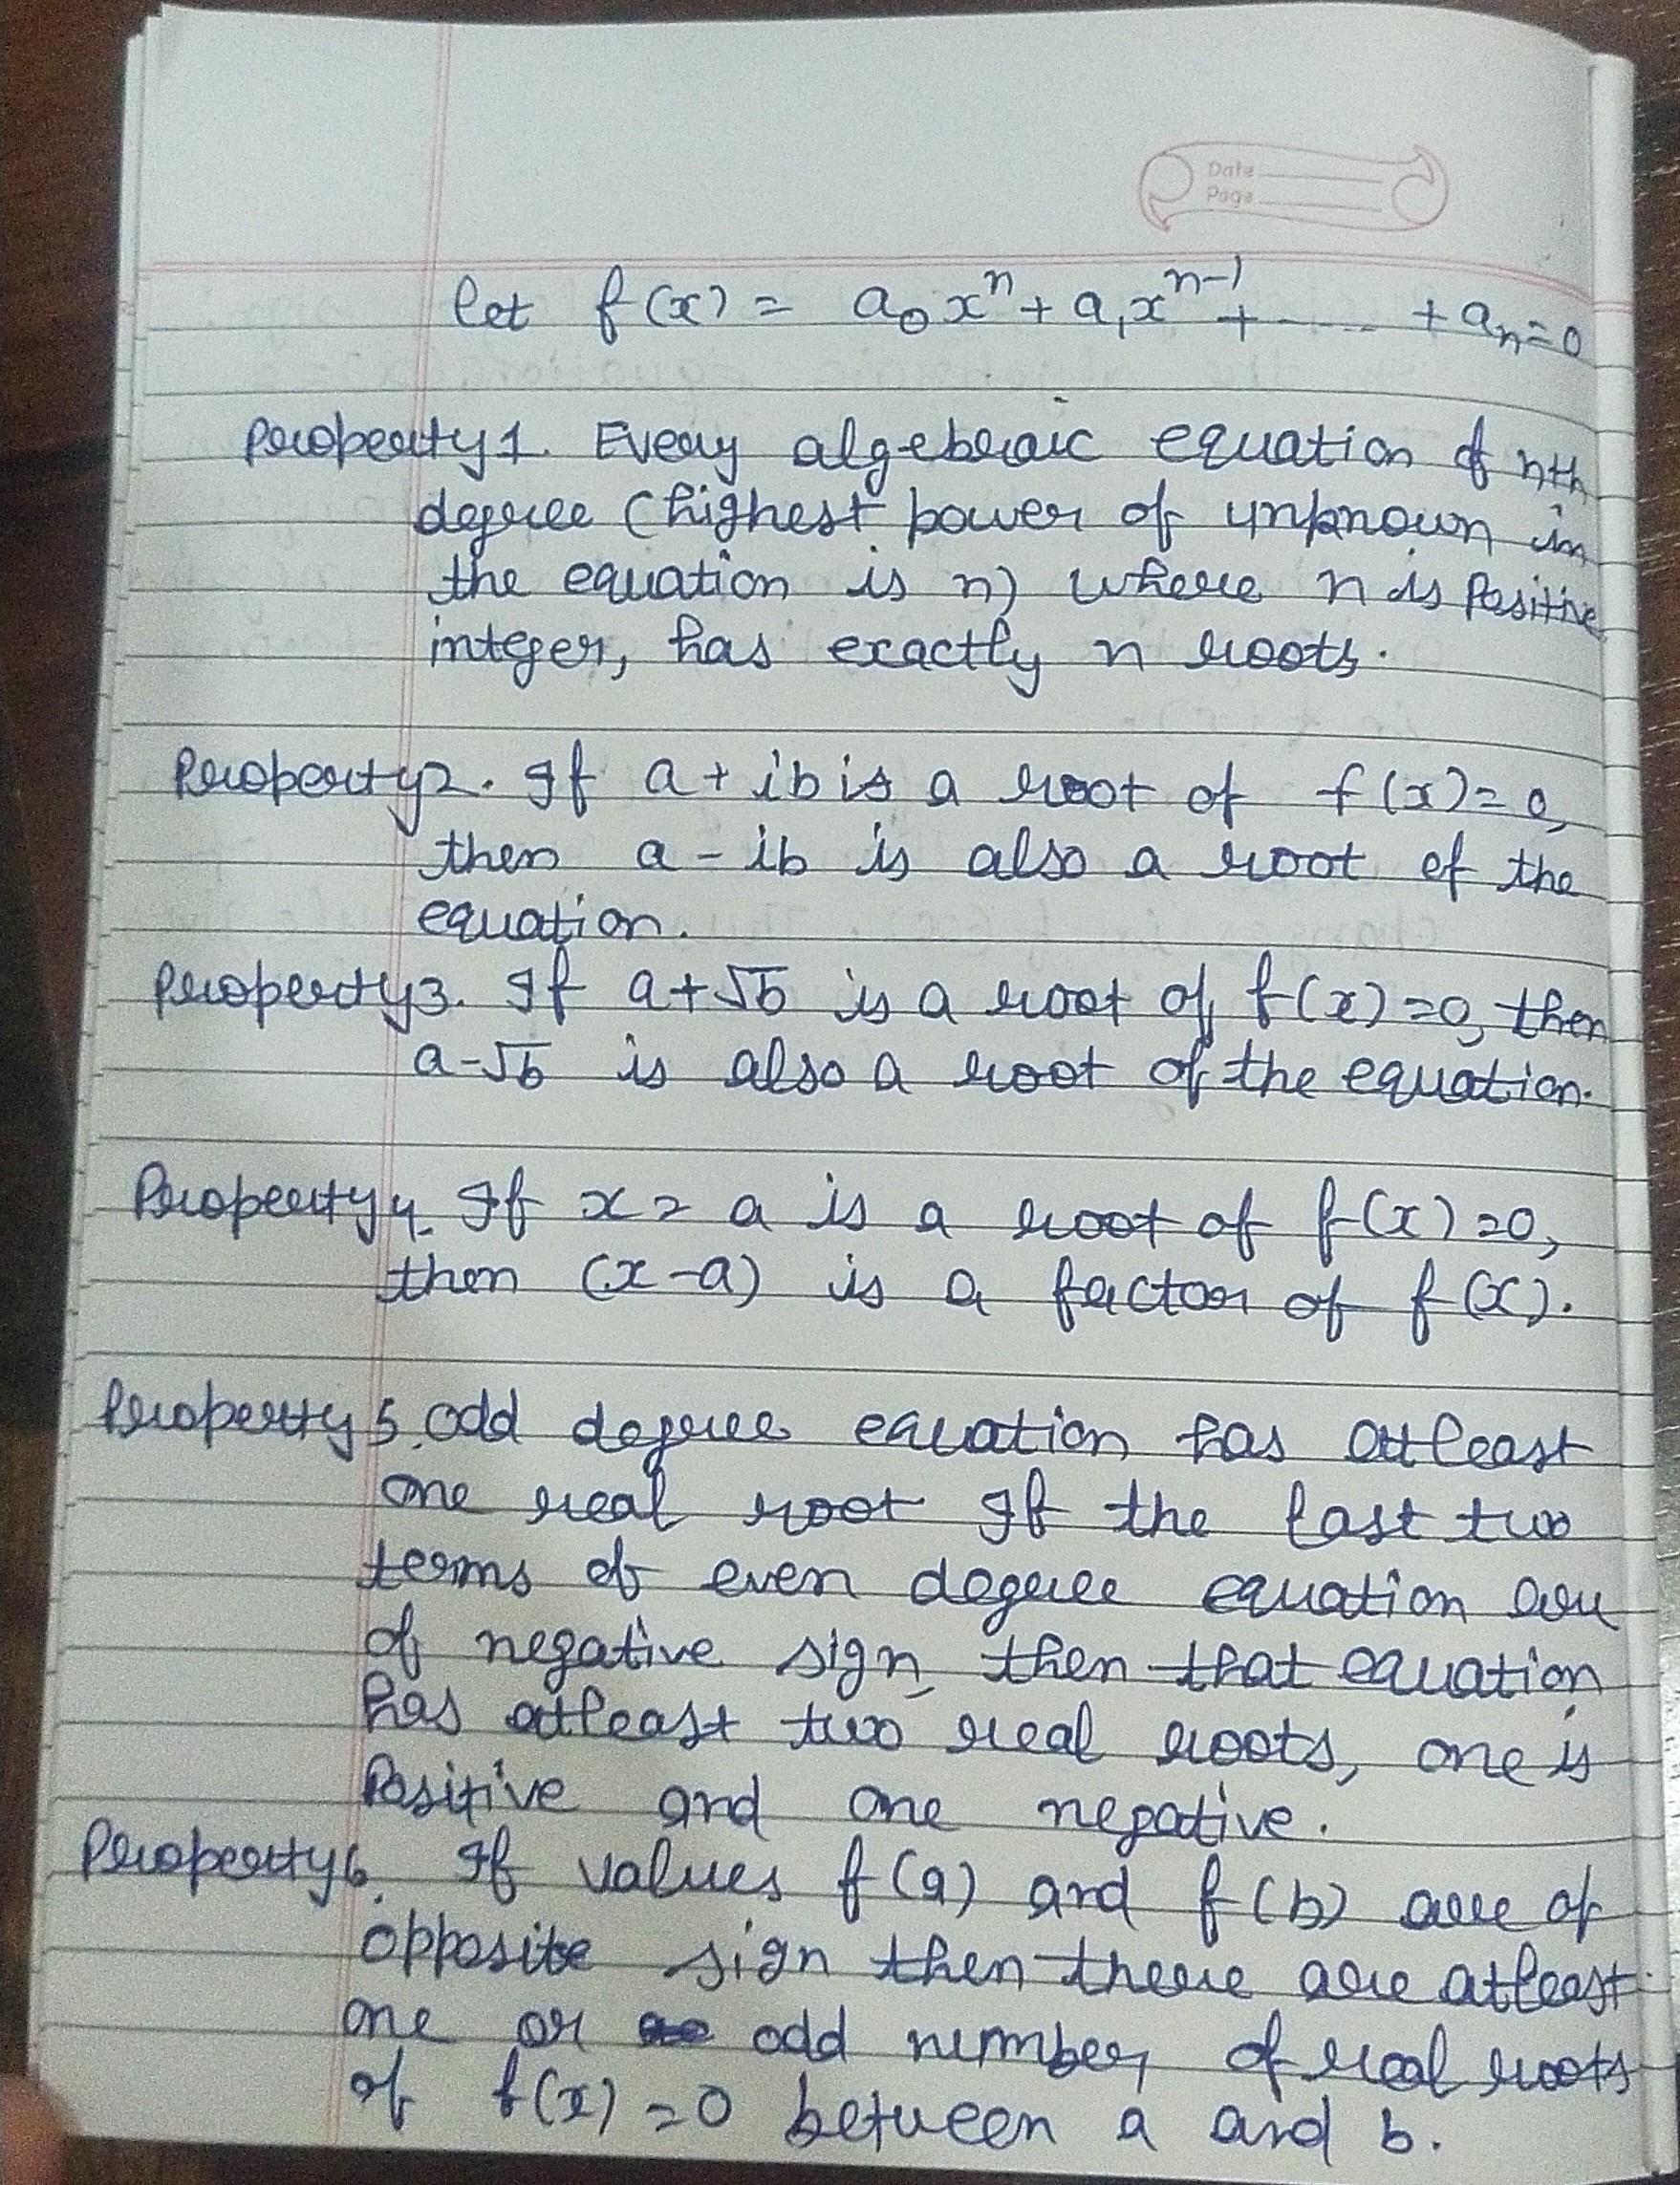 Date
Page
let f(x) = a₀xⁿ + a₁xⁿ⁻¹ + ..... + aₙ = 0
Property 1. Every algebraic equation of nth
degree (highest power of unknown in
the equation is n) where n is Positive
integer, has exactly n roots.
Property 2. If a + ib is a root of f(x) = 0,
then a - ib is also a root of the
equation.
Property 3. If a + √b is a root of f(x) = 0, then
a - √b is also a root of the equation.
Property 4. If x = a is a root of f(x) = 0,
then (x - a) is a factor of f(x).
Property 5. odd degree equation has atleast
one real root If the last two
terms of even degree equation are
of negative sign, then that equation
has atleast two real roots, one is
Positive and one negative.
Property 6. If values f(a) and f(b) are of
opposite sign then there are atleast
one or odd number of real roots
of f(x) = 0 between a and b.